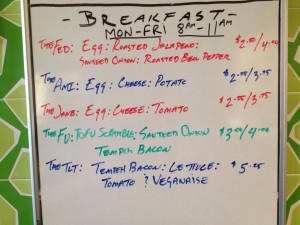 - BREAKFAST -
MON-FRI 8AM-11AM
THE FED: EGG: ROASTED JALAPENO: $2.50/4.00
SAUTEED ONION: ROASTED BELL PEPPER
THE AMI: EGG: CHEESE: POTATO $2.55/3.75
THE JANE: EGG: CHEESE: TOMATO $2.55/3.75
THE FU: TOFU SCRAMBLE: SAUTEED ONION $3.00/4.00
TEMPEH BACON
THE TLT: TEMPEH BACON: LETTUCE: $5.25
TOMATO ? VEGANAISE